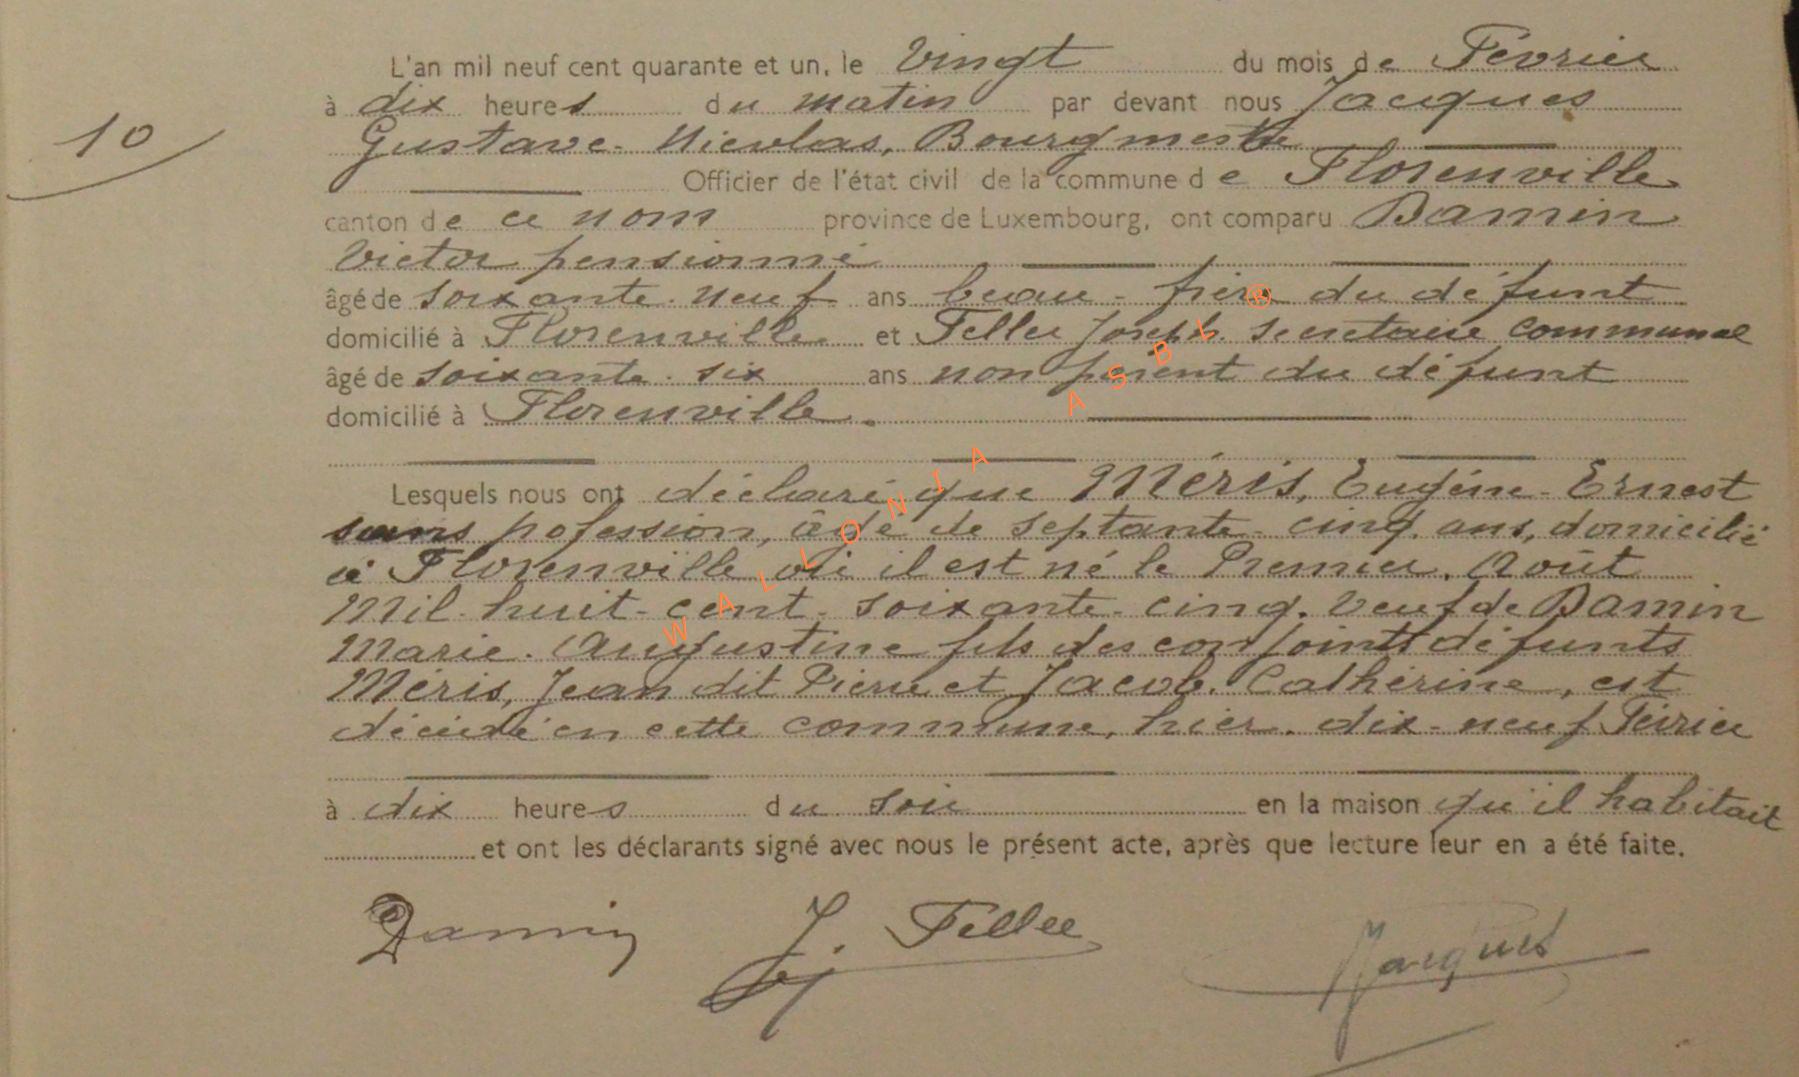 L'an mil neuf cent quarante et un, le Vingt du mois de Février
à dix heures du matin par devant nous Jacques
10
Gustave-Nicolas, Bourgmestre
Officier de l'état civil de la commune de Florenville
canton de ce nom province de Luxembourg, ont comparu Damin
Victor pensionné
âgé de soixante-neuf ans beau-frère du défunt
domicilié à Florenville et Feller Joseph. secrétaire communal
âgé de soixante-six ans non parent du défunt
domicilié à Florenville.
Lesquels nous ont déclaré que Méris, Eugène-Ernest
sans pofession, âgé de septante-cinq ans, domicilié
à Florenville où il est né le Premier. Août
Mil-huit-cent-soixante-cinq. Veuf de Damin
Marie-Augustine fils des conjoints défunts
Méris, Jean dit Pierre et Jacob. Cathérine, est
décédé en cette commune, hier. dix-neuf Février
à dix heures du soir en la maison qu'il habitait
et ont les déclarants signé avec nous le présent acte, après que lecture leur en a été faite.
Damin J. Feller Jacques
WALLONIA ASBL ®